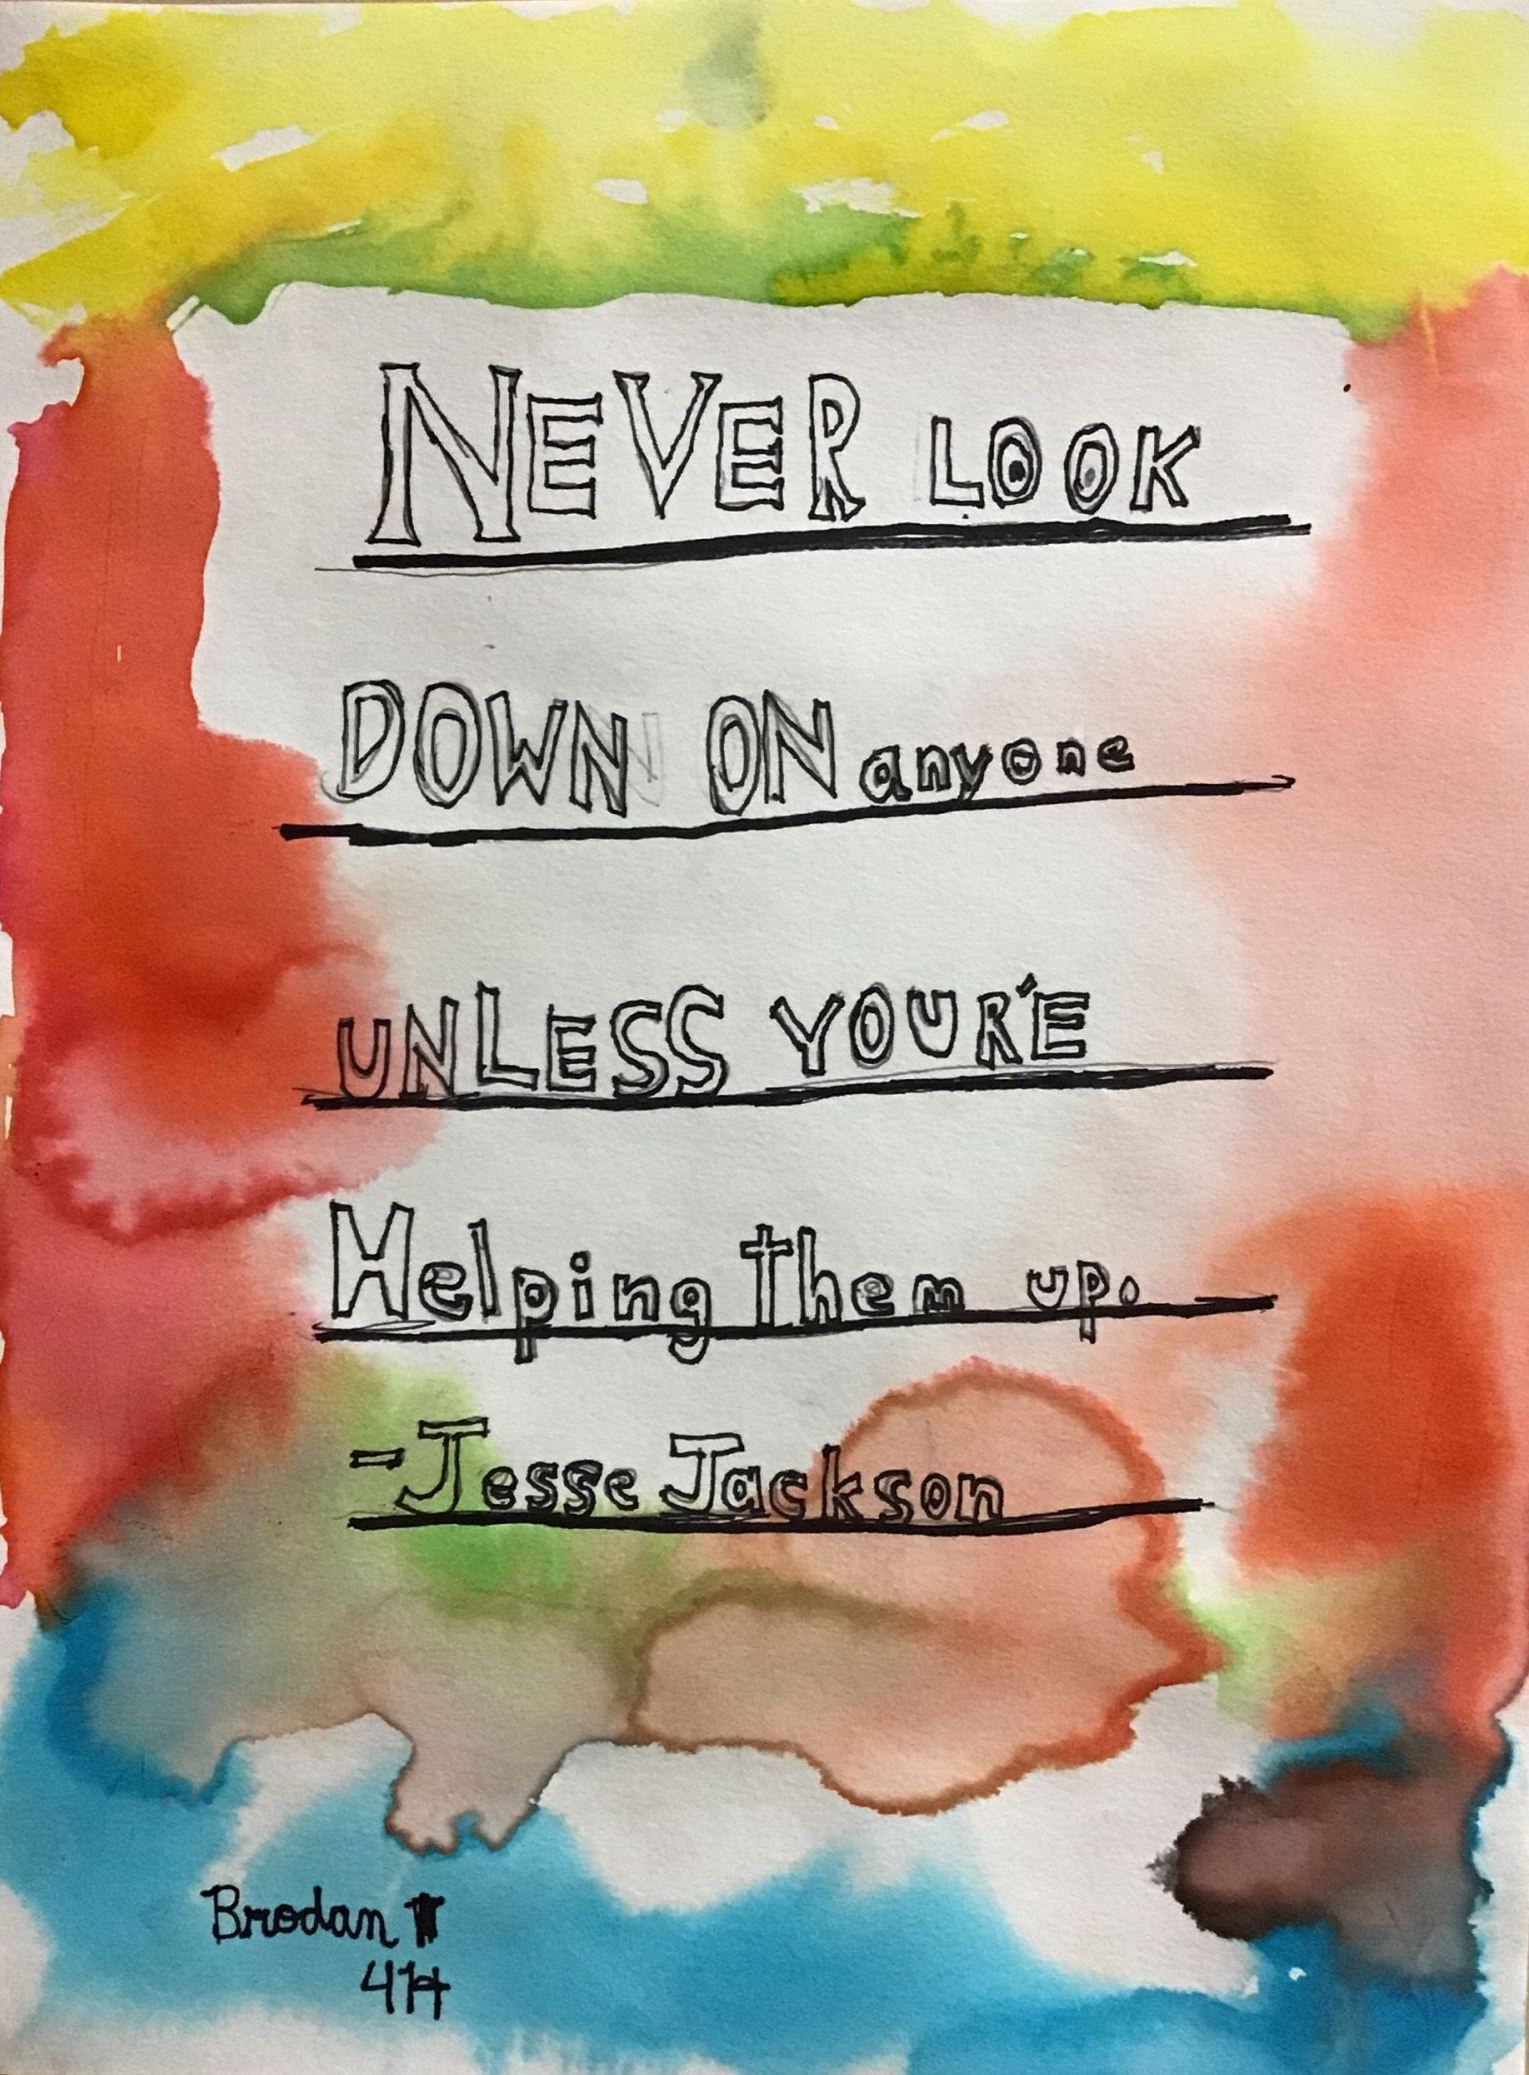 NEVER LOOK
DOWN ON anyone
UNLESS YOUR'E
Helping them up.
-Jesse Jackson
Brodan T
414